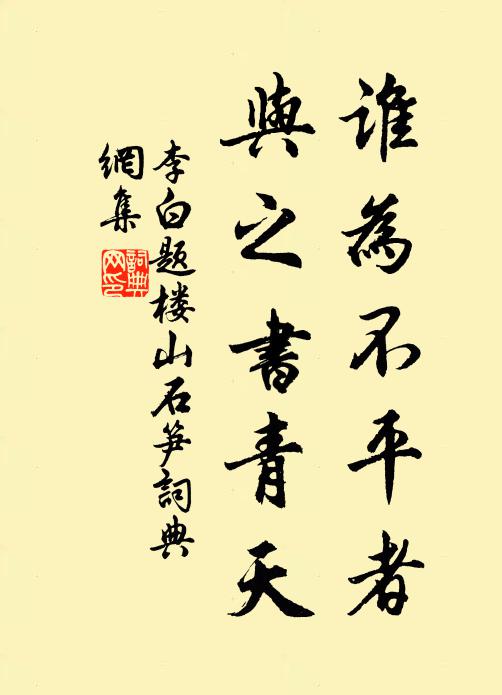 誰為不平者
與之書青天
李白題楼山石笋詞典
網集
詞典
网印